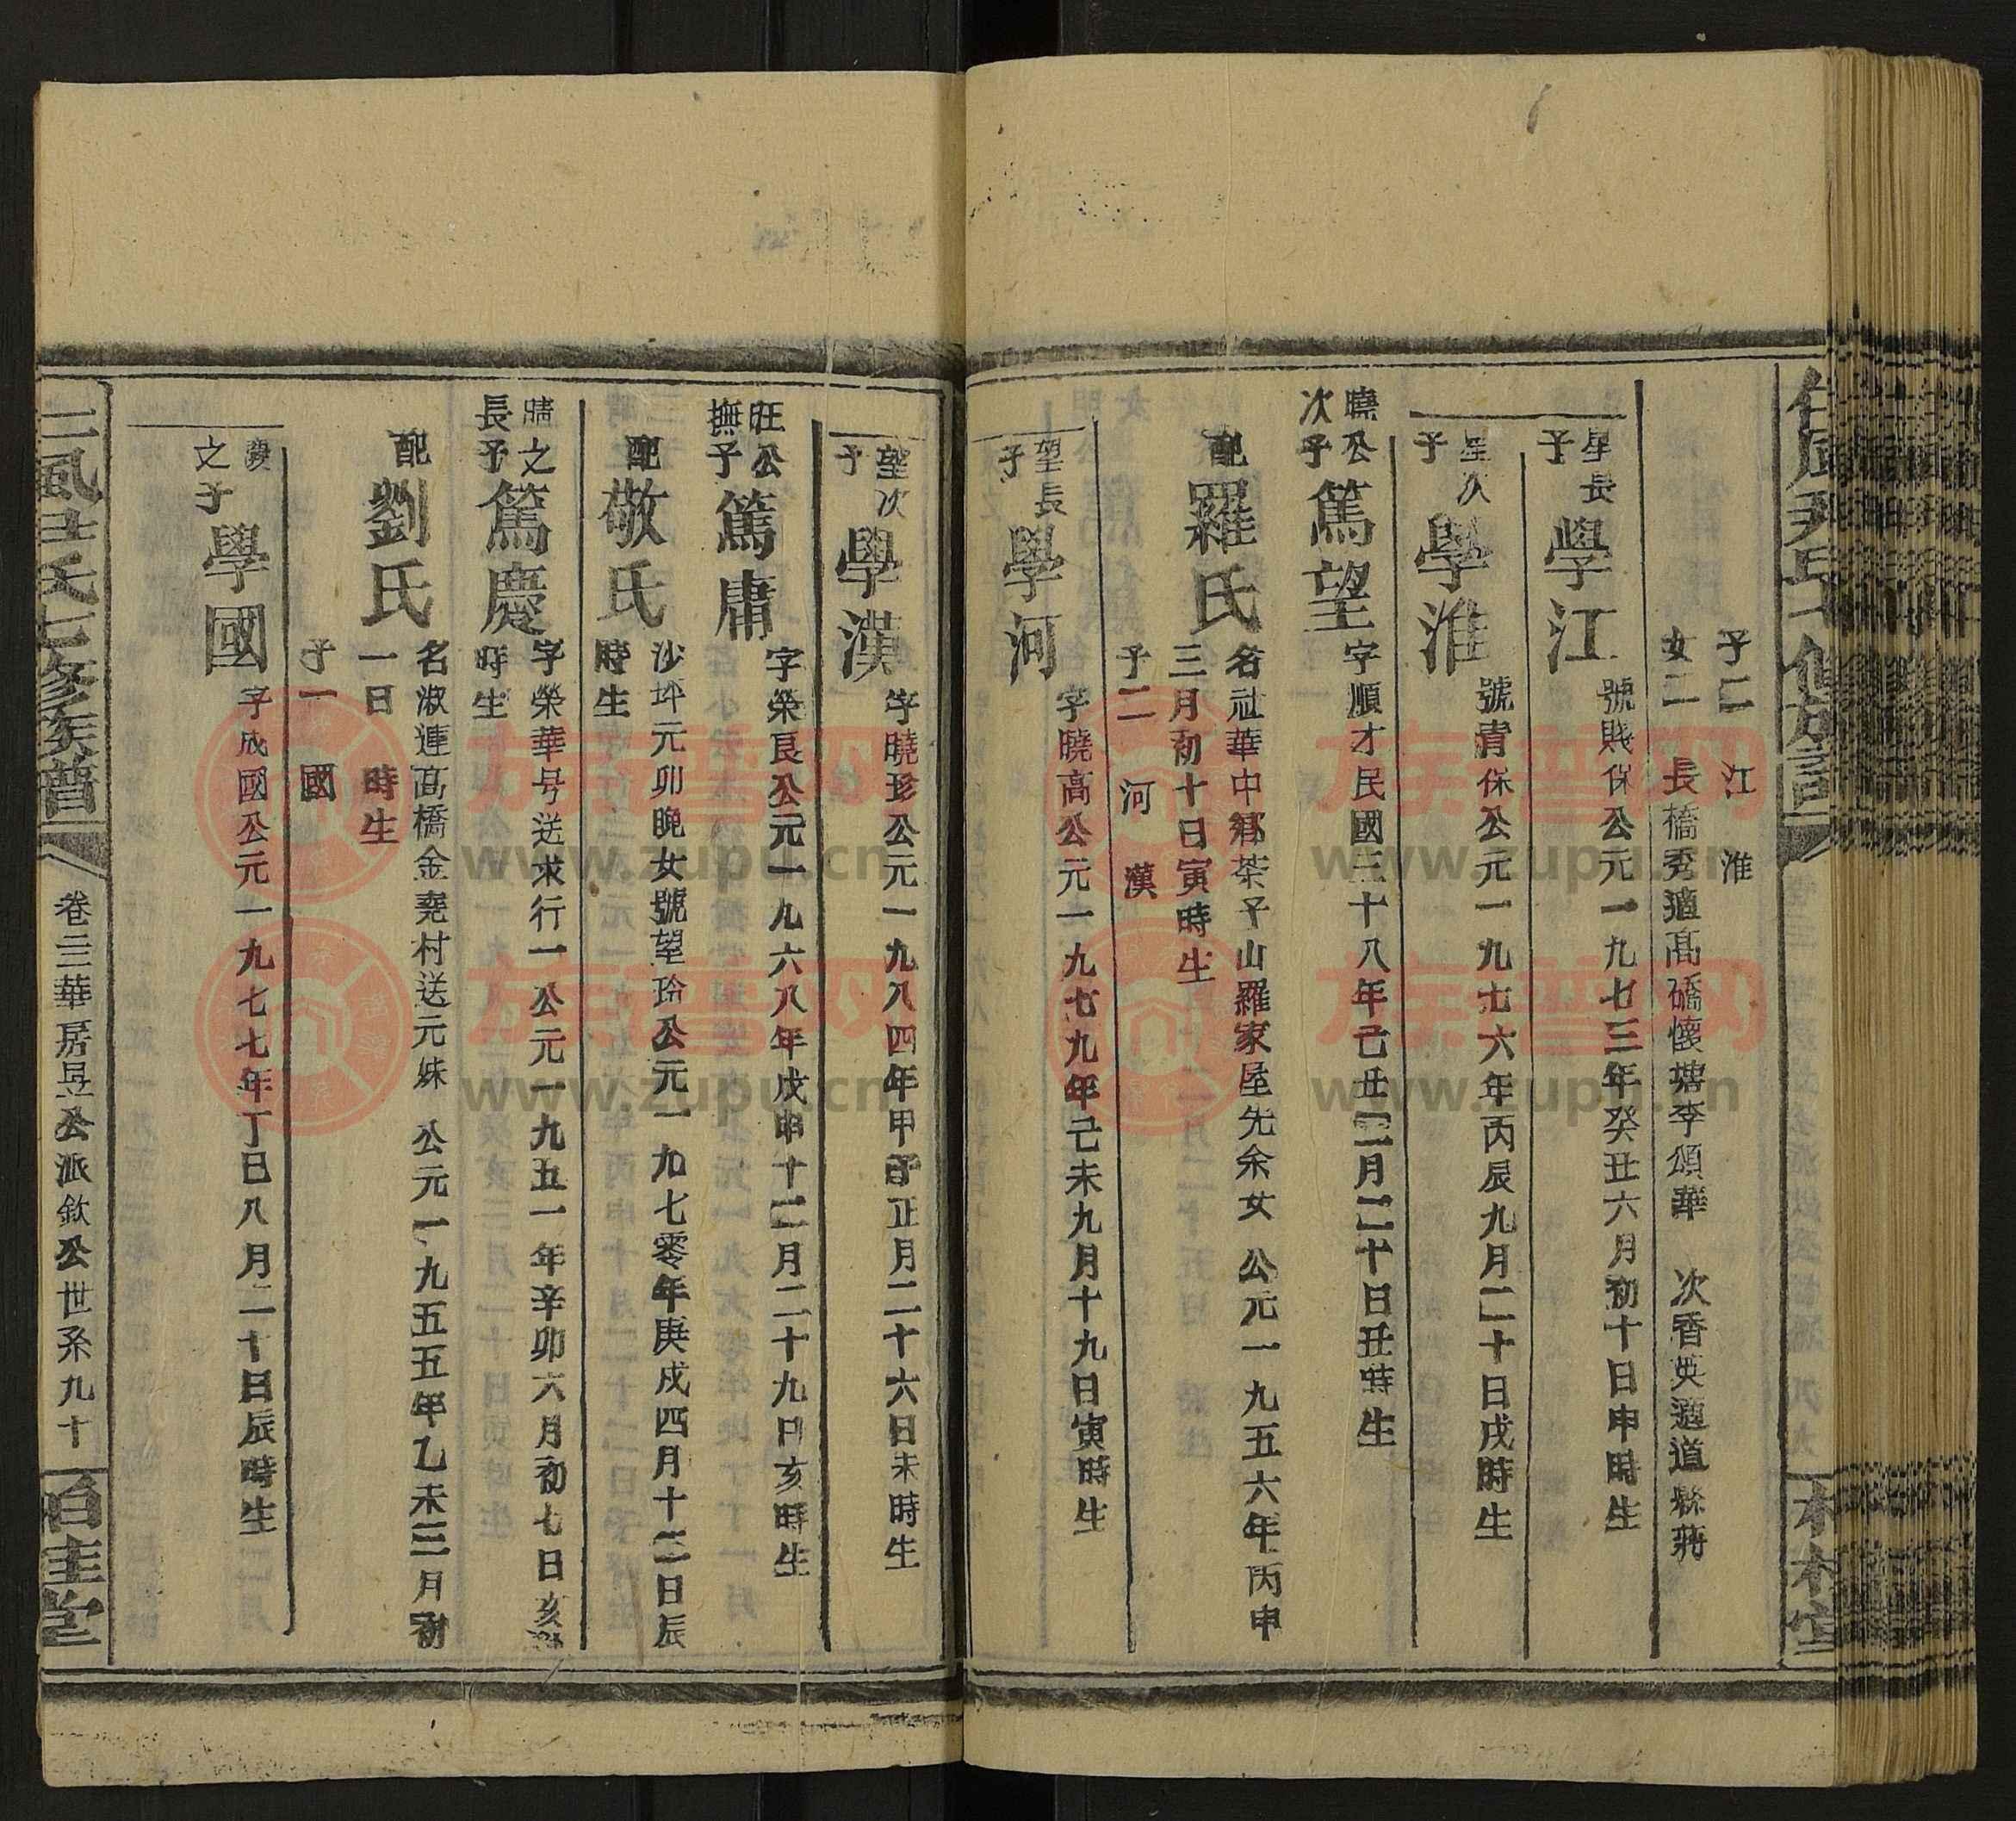 子二 江 淮
女二 長橋秀適髙礄懷塘李頌華 次香英適道縣蔣
星長子 學江 號賤保公元一九七三年癸丑六月初十日申時生
星次子 學淮 號青保公元一九七六年丙辰九月二十日戌時生
曉公次子 篤望 字順才民國三十八年己丑二月二十日丑時生
配 羅氏 名祉華中鄉茶子山羅家屋先余女 公元一九五六年丙申
三月初十日寅時生
子二 河 漢
望長子 學河 字曉高公元一九七九年己未九月十九日寅時生
望次子 學漢 字曉珍公元一九八四年甲子正月二十六日未時生
旺公撫子 篤庸 字榮良公元一九六八年戊申十二月二十九日亥時生
配 敬氏 沙坪元卯晚女號望玲公元一九七零年庚戌四月十二日辰
時生
晴之長子 篤慶 字榮華号送求行一公元一九五一年辛卯六月初七日亥
時生
配 劉氏 名淑連髙橋金堯村送元妹 公元一九五五年乙未三月初
一日 時生
子一 國
慶之子 學國 字成國公元一九七七年丁巳八月二十日辰時生
氏七修族譜 卷三華房昱公派欽公世系九十 百桂堂
族譜网
www.zupu.cn
族譜网
www.zupu.cn
族譜网
www.zupu.cn
族譜网
www.zupu.cn